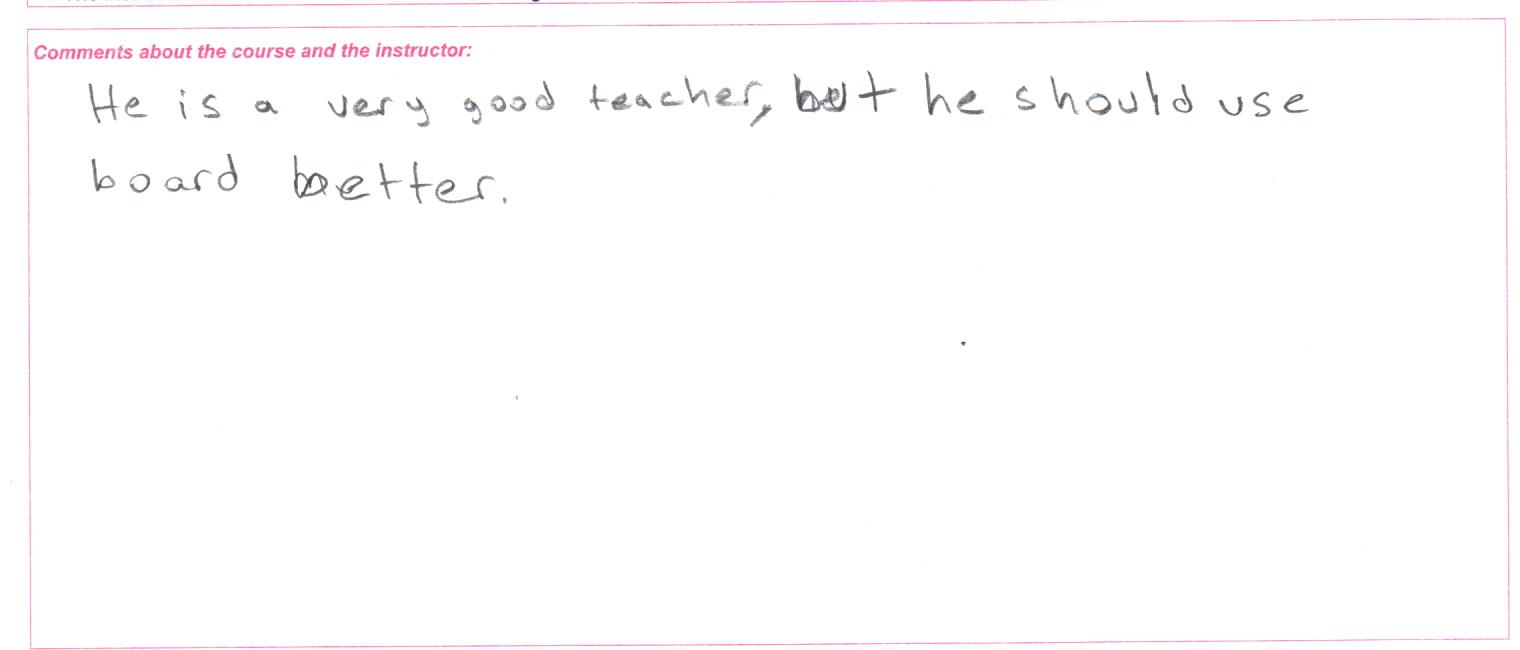 Comments about the course and the instructor:
He is a very good teacher, but he should use
board better.